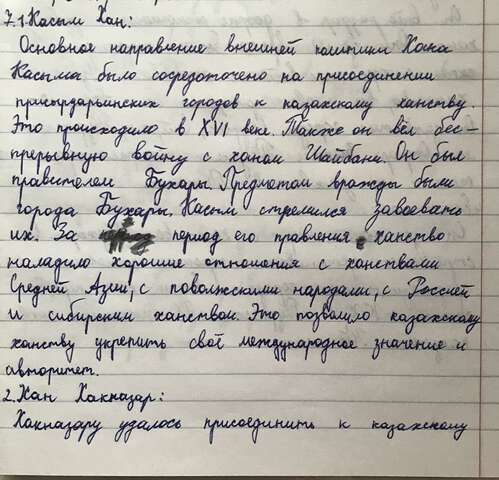 7.1.Касым Хан:
Основное направление внешней политики Хана
Касыма было сосредоточено на присоединении
присырдарьинских городов к казахскому ханству.
Это происходило в XVI веке. Также он вёл бес-
прерывную войну с ханом Шайбани. Он был
правителем Бухары. Предметом вражды были
города Бухары. Касым стремился завоевать
их. За период его правления ханство
наладило хорошие отношения с ханствами
Средней Азии, с поволжскими народами, с Россией
и сибирским ханством. Это позволило казахскому
ханству укрепить своё международное значение и
авторитет.
2.Хан Хакназар:
Хакназару удалось присоединить к казахскому